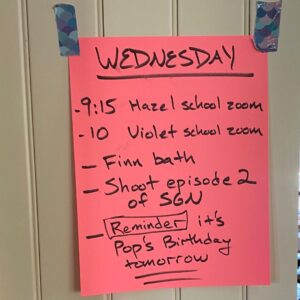 WEDNESDAY
- 9:15 Hazel school zoom
- 10 Violet school zoom
- Finn bath
- Shoot episode 2
of SGN
- Reminder it's
Pop's Birthday
tomorrow